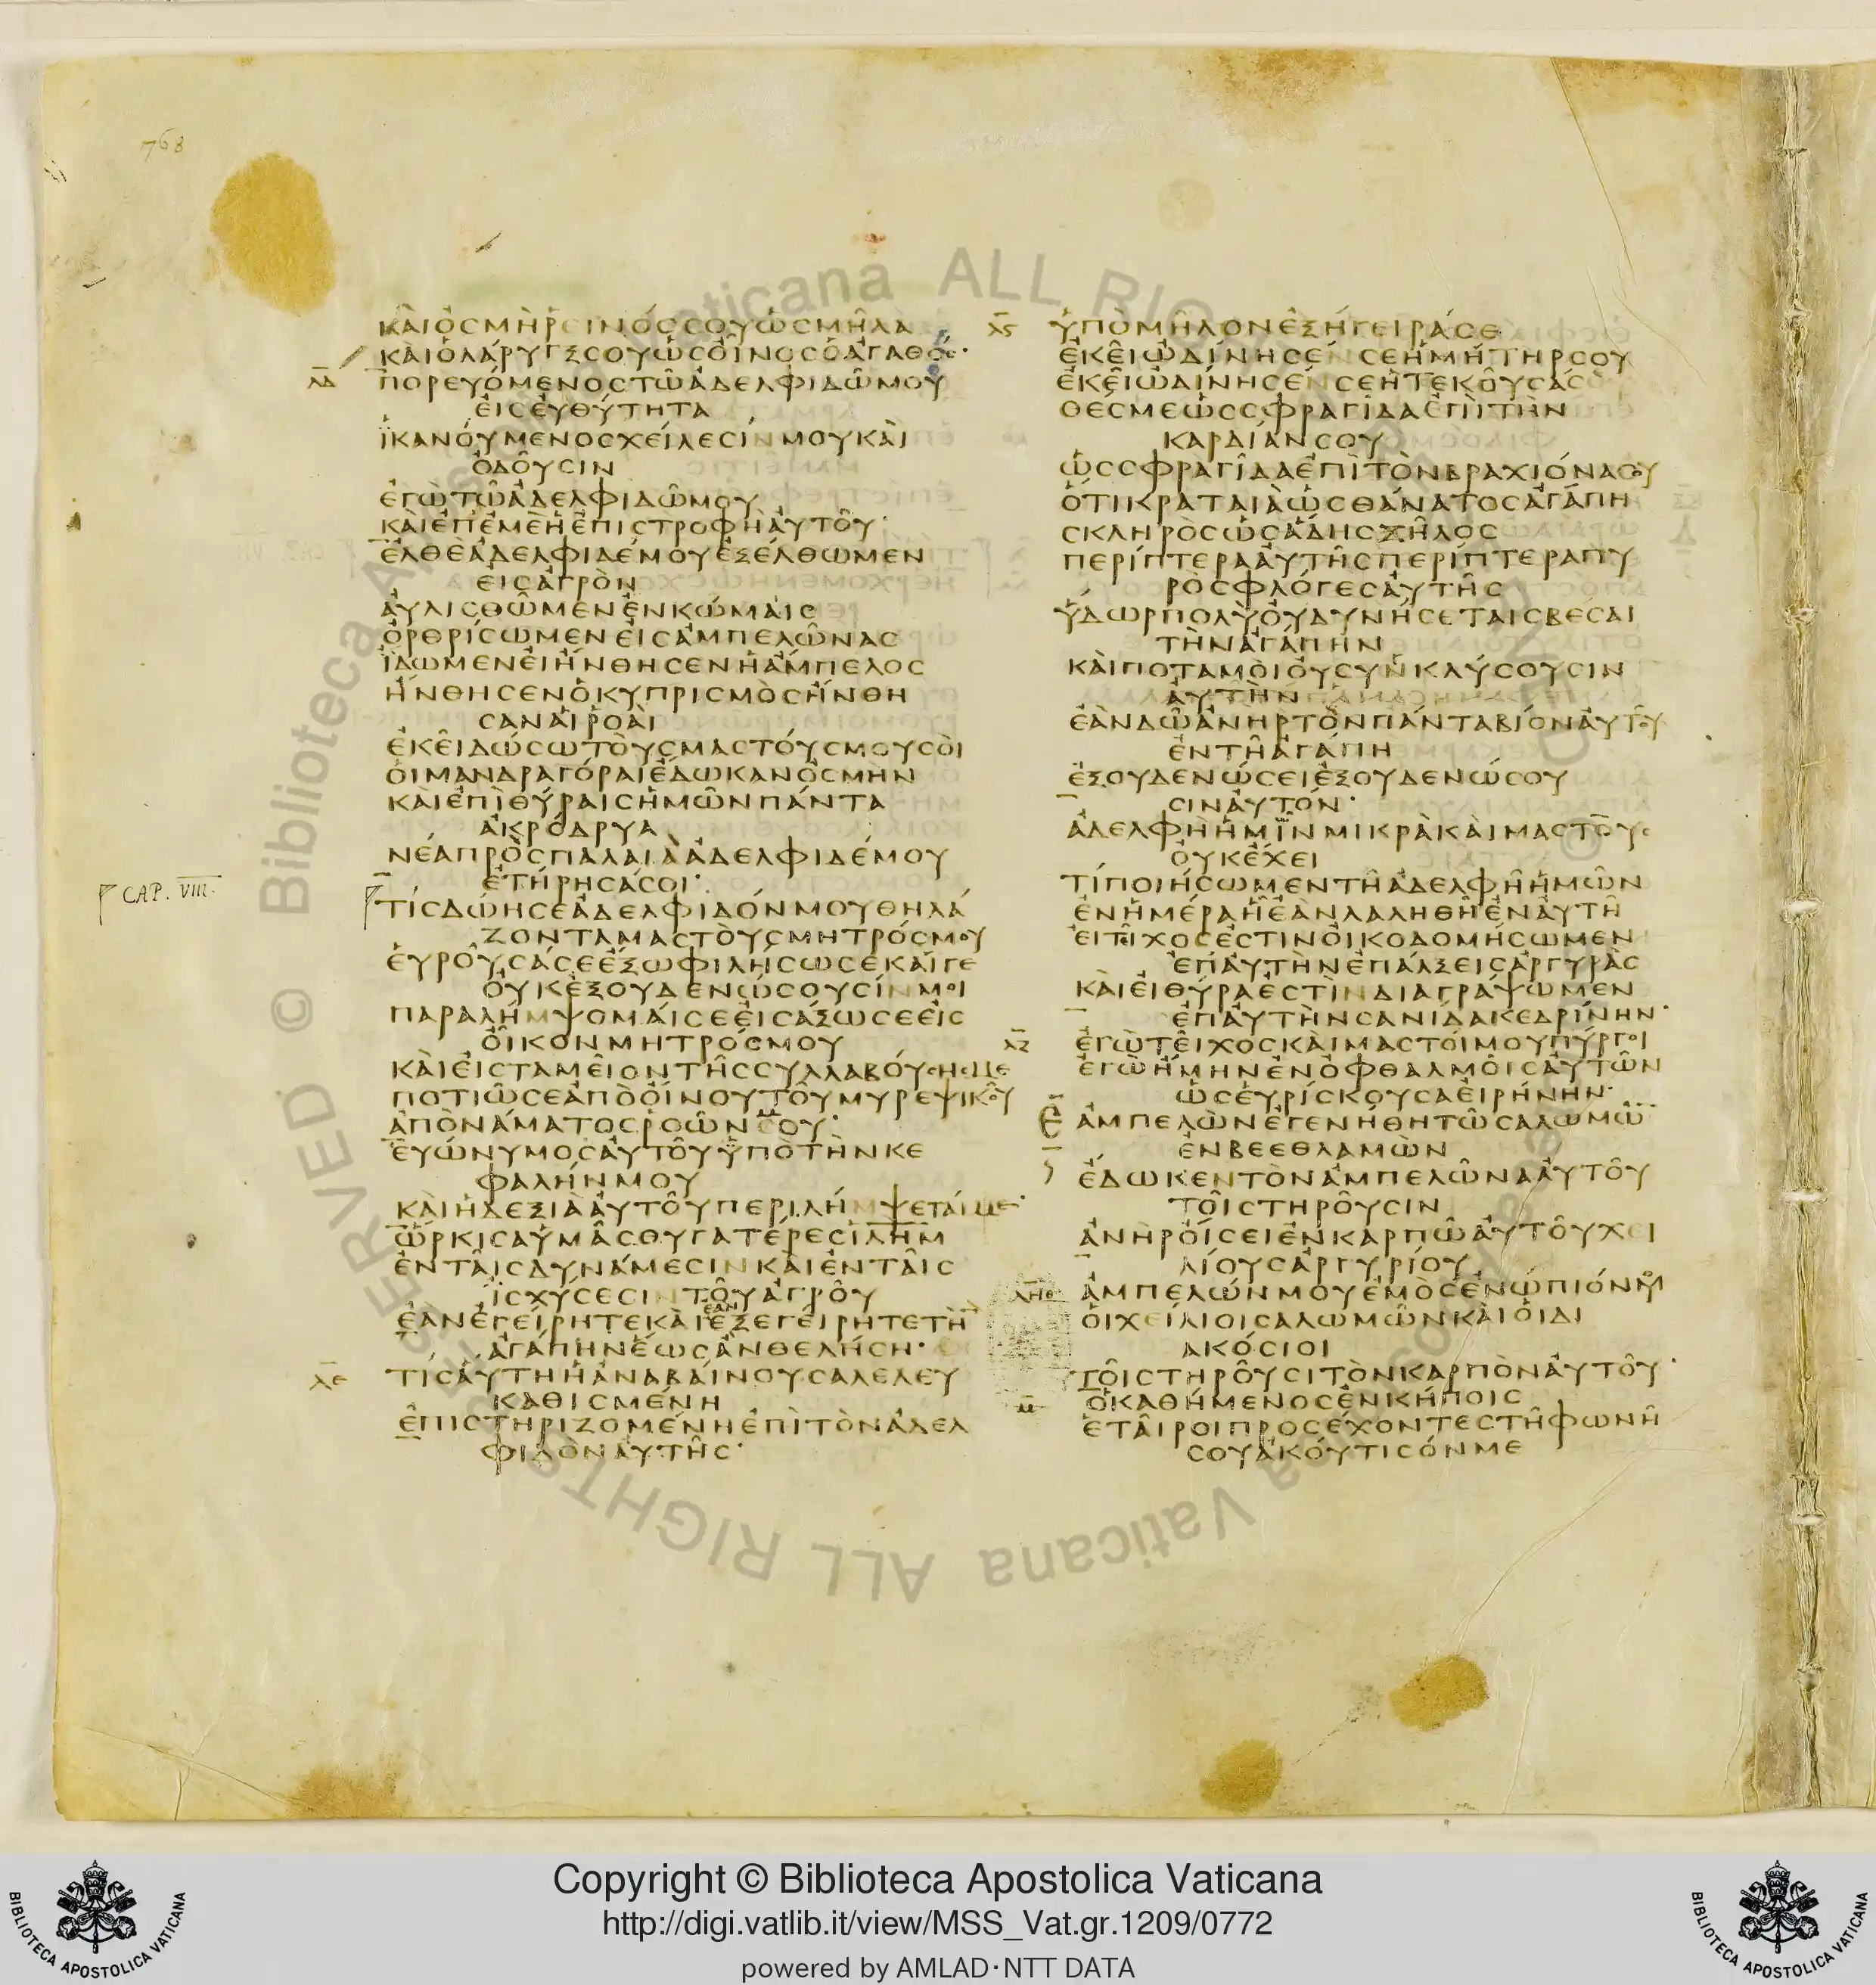 768
ΚΑῚὈΣΜῊΡΕΙΝΌΣΣΟΥὩΣΜΗ͂ΛΑ
ΚΑῚὉΛΆΡΥΓΞΣΟΥὩΣΟἾΝΟΣὉἈΓΑΘΌΣ·
ΛΔ ΠΟΡΕΥΌΜΕΝΟΣΤΩ͂ἈΔΕΛΦΙΔΩ͂ΜΟΥ
ΕἸΣΕΥ̓ΘΎΤΗΤΑ
ἹΚΑΝΟΎΜΕΝΟΣΧΕΊΛΕΣΊΝΜΟΥΚΑῚ
ὈΔΟΥ͂ΣΙΝ
ἘΓῺΤΩ͂ἈΔΕΛΦΙΔΩ͂ΜΟΥ
ΚΑῚἘΠΕΜῈἩἘΠΙΣΤΡΟΦῊΑΥ̓ΤΟΥ͂·
ἘΛΘῈἈΔΕΛΦΙΔΈΜΟΥἘΞΈΛΘΩΜΕΝ
ΕἸΣἈΓΡῸΝ
ΑΥ̓ΛΙΣΘΩ͂ΜΕΝἘΝΚΏΜΑΙΣ
ὈΡΘΡΊΣΩΜΕΝΕἸΣἈΜΠΕΛΩ͂ΝΑΣ
ἼΔΩΜΕΝΕἸἬΝΘΗΣΕΝἩἌΜΠΕΛΟΣ
ἬΝΘΗΣΕΝὉΚΥΠΡΙΣΜῸΣἬΝΘΗ
ΣΑΝΑἹῬΟΑῚ
ἘΚΕΙ͂ΔΏΣΩΤΟῪΣΜΑΣΤΟΎΣΜΟΥΣΟῚ
ΟἹΜΑΝΔΡΑΓΌΡΑΙἜΔΩΚΑΝὈΣΜῊΝ
ΚΑῚἘΠῚΘΎΡΑΙΣἩΜΩ͂ΝΠΆΝΤΑ
ἈΚΡΌΔΡΥΑ
ΝΈΑΠΡῸΣΠΑΛΑΙᾺἈΔΕΛΦΙΔΈΜΟΥ
ἘΤΉΡΗΣΆΣΟΙ·
CAP. VIII. ΤΊΣΔΏΗΣΕἈΔΕΛΦΙΔΌΝΜΟΥΘΗΛΆ
ΖΟΝΤΑΜΑΣΤΟῪΣΜΗΤΡΌΣΜΟΥ
ΕὙΡΟΥ͂ΣΆΣΕἜΞΩΦΙΛΉΣΩΣΕΚΑΊΓΕ
ΟΥ̓ΚἘΞΟΥΔΕΝΏΣΟΥΣΊΝΜΟΙ
ΠΑΡΑΛΉΜΨΟΜΑΊΣΕΕἸΣΆΞΩΣΕΕἸΣ
ΟἾΚΟΝΜΗΤΡΌΣΜΟΥ
ΚΑῚΕἸΣΤΑΜΕΙ͂ΟΝΤΗ͂ΣΣΥΛΛΑΒΟΎΣΗΣΜΕ
ΠΟΤΙΩ͂ΣΕἈΠῸΟἼΝΟΥΤΟΥ͂ΜΥΡΕΨΙΚΟΥ͂
ἈΠῸΝΆΜΑΤΟΣῬΟΩ͂ΝΣΟΥ·
ΕΥ̓ΏΝΥΜΟΣΑΥ̓ΤΟΥ͂ὙΠῸΤῊΝΚΕ
ΦΑΛΉΝΜΟΥ
ΚΑῚἩΔΕΞΙᾺΑΥ̓ΤΟΥ͂ΠΕΡΙΛΉΜΨΕΤΑΊΜΕ·
ὭΡΚΙΣΑὙΜΑ͂ΣΘΥΓΑΤΈΡΕΣΙΛΗΜ
ἘΝΤΑΙ͂ΣΔΥΝΆΜΕΣΙΝΚΑῚἘΝΤΑΙ͂Σ
ἸΣΧΎΣΕΣΙΝΤΟΥ͂ἈΓΡΟΥ͂
ἘΑΝἘΓΕΊΡΗΤΕΚΑῚΕΑΝἘΞΕΓΕΊΡΗΤΕΤῊΝ
ἈΓΆΠΗΝἝΩΣἊΝΘΕΛΉΣΗ·
ΛΕ ΤΊΣΑΎΤΗἩἈΝΑΒΑΊΝΟΥΣΑΛΕΛΕΥ
ΚΑΘΙΣΜΈΝΗ
ἘΠΙΣΤΗΡΙΖΟΜΈΝΗἘΠῚΤῸΝἈΔΕΛ
ΦΙΔῸΝΑΥ̓ΤΗ͂Σ·
ΛϚ ὙΠῸΜΗ͂ΛΟΝἘΞΉΓΕΙΡΆΣΕ
ἘΚΕΙ͂ὨΔΊΝΗΣΈΝΣΕἩΜΉΤΗΡΣΟΥ
ἘΚΕΙ͂ὨΔΊΝΗΣΈΝΣΕἩΤΕΚΟΥ͂ΣΆΣΟΥ
ΘΈΣΜΕὩΣΣΦΡΑΓΙ͂ΔΑἘΠῚΤῊΝ
ΚΑΡΔΊΑΝΣΟΥ
ὩΣΣΦΡΑΓΙ͂ΔΑἘΠῚΤῸΝΒΡΑΧΙΌΝΑΣΟΥ
ὍΤΙΚΡΑΤΑΙᾺὩΣΘΆΝΑΤΟΣἈΓΆΠΗ
ΣΚΛΗΡῸΣὩΣἍΔΗΣΖΗ͂ΛΟΣ
ΠΕΡΊΠΤΕΡΑΑΥ̓ΤΗ͂ΣΠΕΡΊΠΤΕΡΑΠΥ
ΡῸΣΦΛΌΓΕΣΑΥ̓ΤΗ͂Σ
ὝΔΩΡΠΟΛῪΟΥ̓ΔΥΝΉΣΕΤΑΙΣΒΈΣΑΙ
ΤῊΝἈΓΆΠΗΝ
ΚΑῚΠΟΤΑΜΟῚΟΥ̓ΣΥΝΚΛΎΣΟΥΣΙΝ
ΑΥ̓ΤῊΝ
ἘᾺΝΔΩ͂ἈΝΗΡΤῸΝΠΆΝΤΑΒΊΟΝΑΥ̓ΤΟΥ͂
ἘΝΤΗ͂ἈΓΆΠΗ
ἘΞΟΥΔΕΝΏΣΕΙἘΞΟΥΔΕΝΏΣΟΥ
ΣΙΝΑΥ̓ΤΌΝ·
ἈΔΕΛΦῊἩΜΙ͂ΝΜΙΚΡᾺΚΑῚΜΑΣΤΟῪΣ
ΟΥ̓ΚἜΧΕΙ
ΤΊΠΟΙΉΣΩΜΕΝΤΗ͂ἈΔΕΛΦΗ͂ἩΜΩ͂Ν
ἘΝἩΜΈΡΑἯἘᾺΝΛΑΛΗΘΗ͂ἘΝΑΥ̓ΤΗ͂
ΕΙΤΕΙ͂ΧΟΣἘΣΤΙΝΟἸΚΟΔΟΜΉΣΩΜΕΝ
ἘΠΑΥ̓ΤῊΝἘΠΆΛΞΕΙΣἈΡΓΥΡᾺΣ
ΚΑῚΕἸΘΎΡΑἘΣΤῚΝΔΙΑΓΡΆΨΩΜΕΝ
ἘΠΑΥ̓ΤῊΝΣΑΝΊΔΑΚΕΔΡΊΝΗΝ·
ΛΖ ἘΓῺΤΕΙ͂ΧΟΣΚΑῚΜΑΣΤΟΊΜΟΥΠΎΡΓΟΙ
ἘΓῺἬΜΗΝἘΝὈΦΘΑΛΜΟΙ͂ΣΑΥ̓ΤΩ͂Ν
ὩΣΕὙΡΊΣΚΟΥΣΑΕἸΡΉΝΗΝ·
Ε ἈΜΠΕΛῺΝἘΓΕΝΉΘΗΤΩ͂ΣΑΛΩΜΩ
ἘΝΒΕΕΘΛΑΜῺΝ
ἜΔΩΚΕΝΤῸΝἈΜΠΕΛΩ͂ΝΑΑΥ̓ΤΟΥ͂
ΤΟΙ͂ΣΤΗΡΟΥ͂ΣΙΝ
ἈΝῊΡΟἼΣΕΙἘΝΚΑΡΠΩ͂ΑΥ̓ΤΟΥ͂ΧΕΙ
ΛΊΟΥΣἈΡΓΥΡΊΟΥ
ΛΗ ἈΜΠΕΛΏΝΜΟΥἘΜῸΣἘΝΏΠΙΌΝΜΟΥ
ΟἹΧΕΊΛΙΟΙΣΑΛΩΜΩ͂ΝΚΑῚΟἹΔΙ
ΑΚΌΣΙΟΙ
ΤΟΙ͂ΣΤΗΡΟΥ͂ΣΙΤῸΝΚΑΡΠῸΝΑΥ̓ΤΟΥ͂·
Μ ὉΚΑΘΉΜΕΝΟΣἘΝΚΉΠΟΙΣ
ἙΤΑΙ͂ΡΟΙΠΡΟΣΈΧΟΝΤΕΣΤΗ͂ΦΩΝΗ͂
ΣΟΥἈΚΟΎΤΙΣΌΝΜΕ
© Biblioteca Apostolica Vaticana ALL RIGHTS RESERVED
Copyright © Biblioteca Apostolica Vaticana
http://digi.vatlib.it/view/MSS_Vat.gr.1209/0772
powered by AMLAD·NTT DATA
BIBLIOTECA APOSTOLICA VATICANA
BIBLIOTECA APOSTOLICA VATICANA